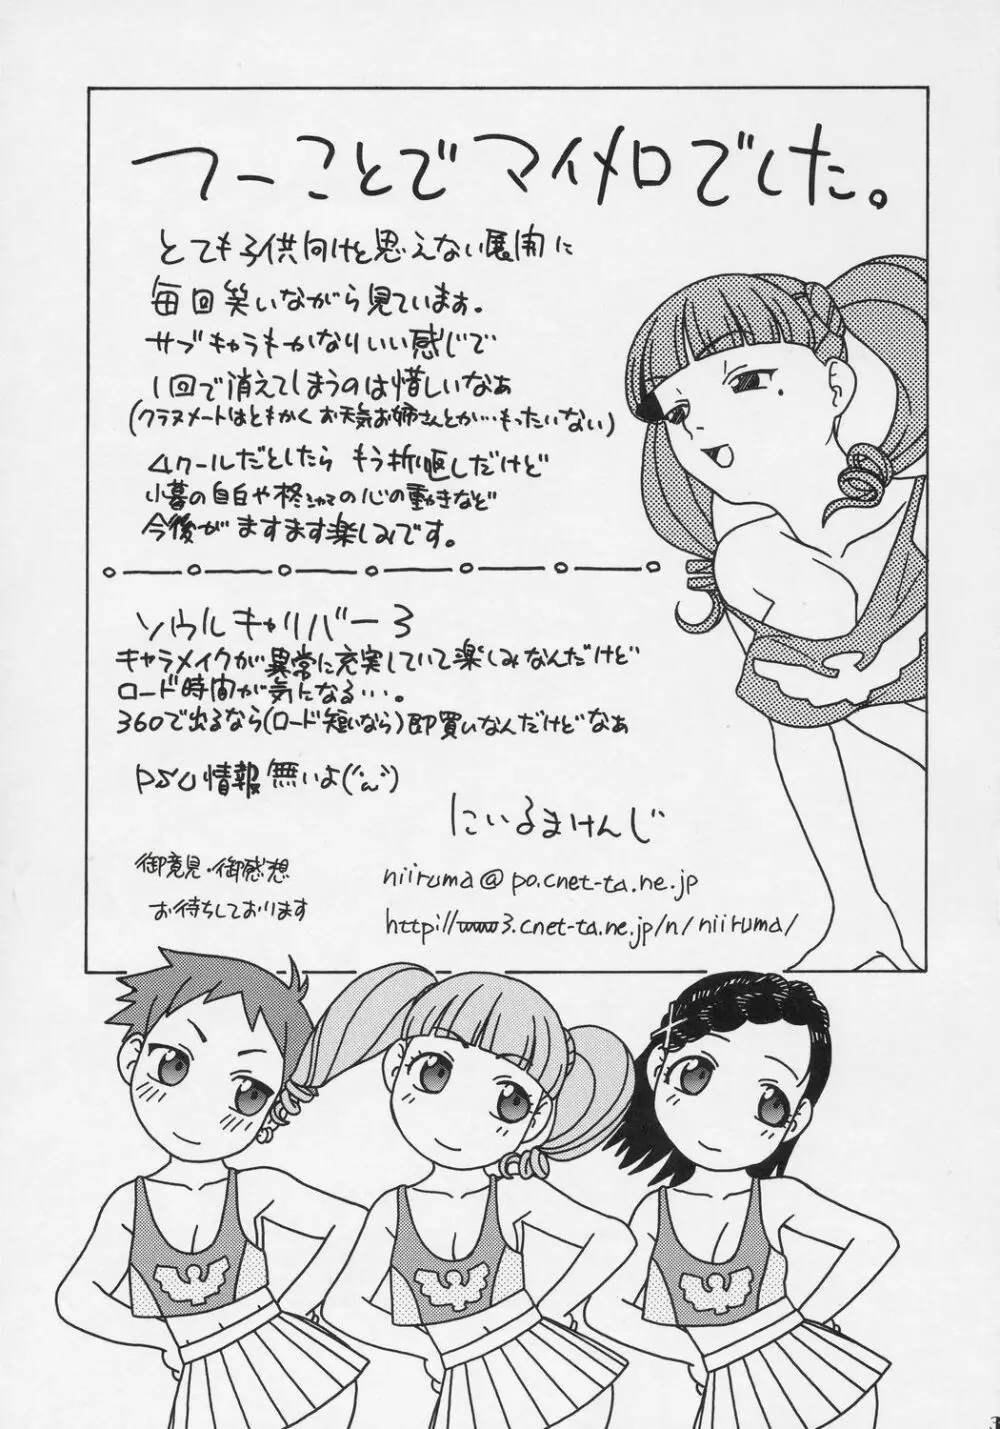 つーことでマイメロでした。
とても子供向けと思えない展開に
毎回笑いながら見ています。
サブキャラもかなりいい感じで
1回で消えてしまうのは惜しいなぁ
(クラスメートはともかく お天気お姉さんとか…もったいない)
4クールだとしたら もう折り返しだけど
小暮の自白や柊シャマの心の動きなど
今後がますます楽しみです。
ソウルキャリバー3
キャラメイクが異常に充実していて楽しみなんだけど
ロード時間が気になる…。
360で出るなら(ロード短いなら)即買いなんだけどなぁ
PSU情報無いよ(´ん`)
にいるまけんじ
御意見・御感想
お待ちしております
niiruma@po.cnet-ta.ne.jp
http://www3.cnet-ta.ne.jp/n/niiruma/
3